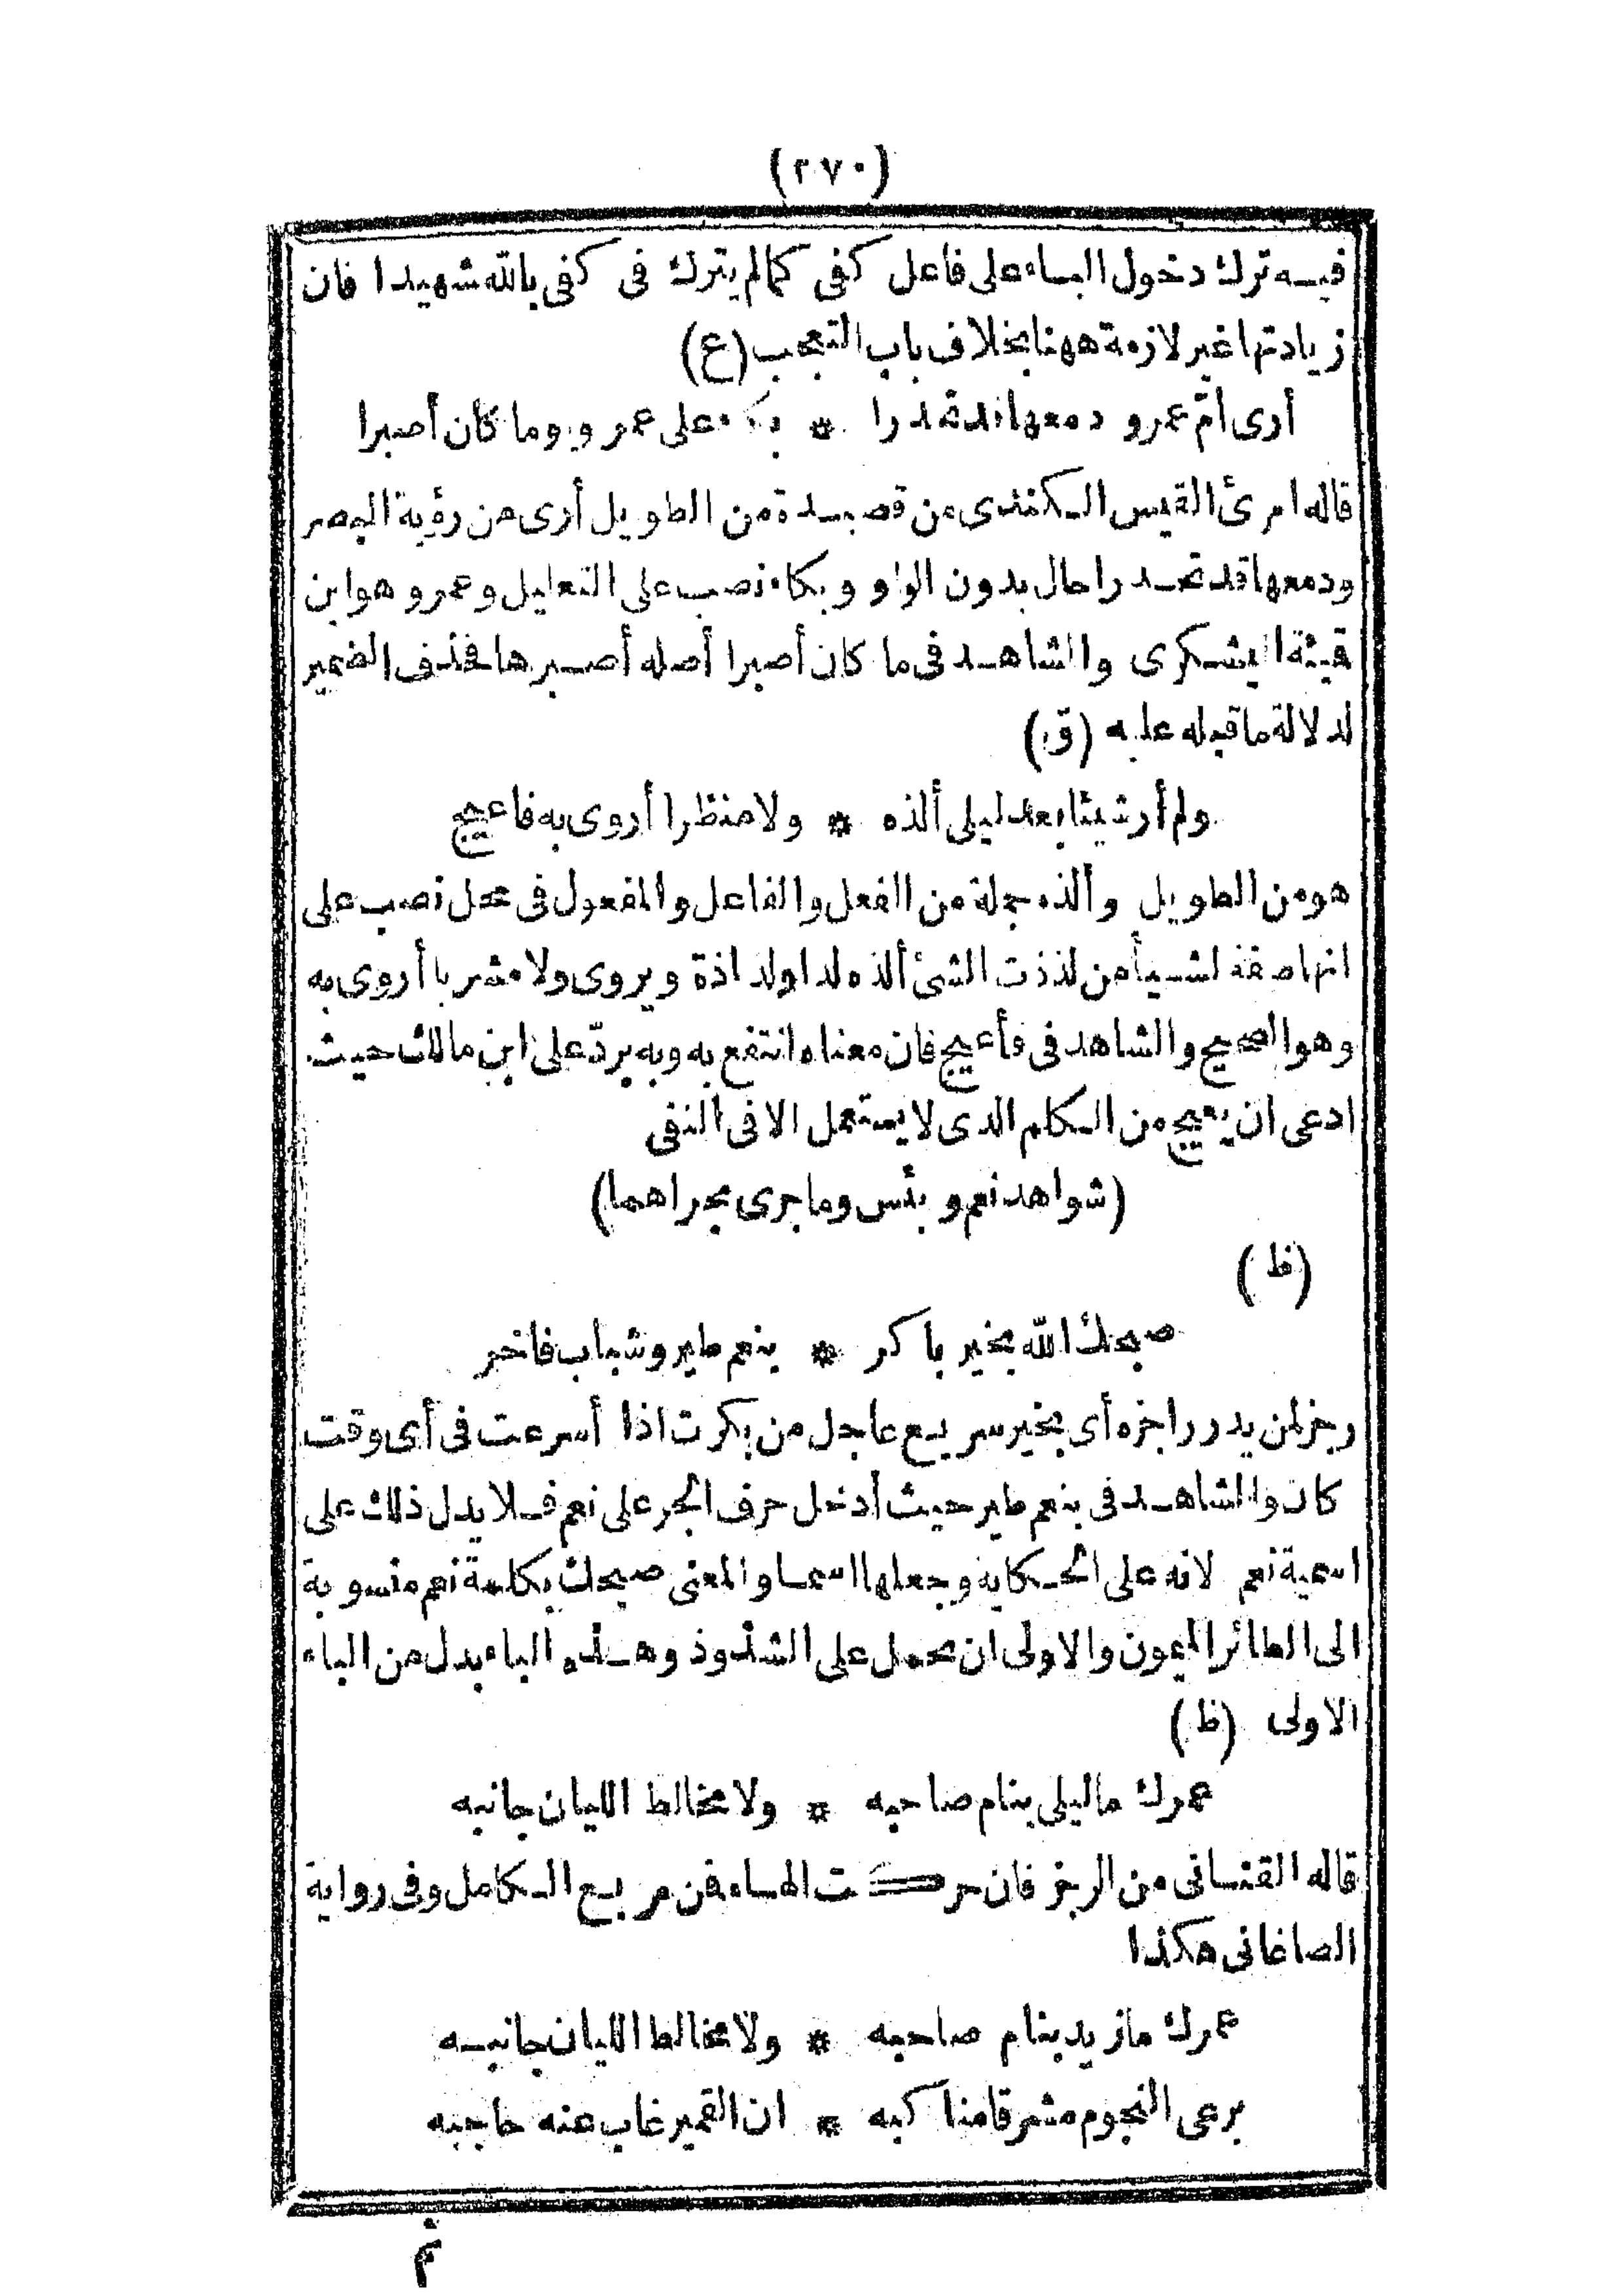 (٢٧٠)
فيه ترك دخول الباء على فاعل كفى كما لم يترك فى كفى بالله شهيدا فان
زيادتها غير لازمة ههنا بخلاف باب التعجب (ع)
أرى أمّ عمرو دمعها قد تحدرا * بكاء على عمرو وما كان أصبرا
قاله امرئ القيس الكندى من قصيدة من الطويل أرى من رؤية البصر
ودمعها قد تحدرا حال بدون الواو وبكاء نصب على التعليل وعمرو هو ابن
قيئة اليشكرى والشاهد فى ما كان أصبرا أصله أصبرها فحذف الضمير
لدلالة ما قبله عليه (ق)
ولم أر شيئا بعد ليلى ألذه * ولا منظرا أروى به فاعيج
هو من الطويل وألذه جملة من الفعل والفاعل والمفعول فى محل نصب على
انها صفة لشيأ من لذذت الشئ ألذه لذا ولذاذة ويروى ولا مشربا أروى به
وهو الصحيح والشاهد فى فأعيج فان معناه انتفع به وبه يردّ على ابن مالك حيث
ادعى ان يعيج من الكلام الذى لا يستعمل الا فى النفى
(شواهد نعم وبئس وما جرى مجراهما)
(ظ)
صبحك الله بخير باكر * بنعم طير وشباب فاخر
رجز لمن يدر راجزه أى بخير سريع عاجل من بكرت اذا أسرعت فى أى وقت
كان والشاهد فى بنعم طير حيث أدخل حرف الجر على نعم فلا يدل ذلك على
اسمية نعم لانه على الحكاية وجعلها اسما والمعنى صبحك بكلمة نعم منسوبة
الى الطائر الميمون والاولى ان يحمل على الشذوذ وهذه الباء بدل من الباء
الاولى (ظ)
عمرك ما ليلى بنام صاحبه * ولا مخالط الليان جانبه
قاله القنانى من الرجز فان حركت الهاء فمن مربع الكامل وفى رواية
الصاغانى هكذا
عمرك ما زيد بنام صاحبه * ولا مخالط الليان جانبه
يرعى النجوم مشرقا مناكبه * ان القمير غاب عنه حاجبه